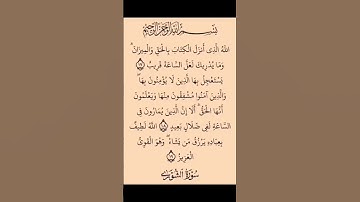 بِسْمِ اللَّهِ الرَّحْمَٰنِ الرَّحِيمِ
اللَّهُ الَّذِي أَنْزَلَ الْكِتَابَ بِالْحَقِّ وَالْمِيزَانَ ۗ
وَمَا يُدْرِيكَ لَعَلَّ السَّاعَةَ قَرِيبٌ ۝١٧
يَسْتَعْجِلُ بِهَا الَّذِينَ لَا يُؤْمِنُونَ بِهَا ۖ
وَالَّذِينَ آمَنُوا مُشْفِقُونَ مِنْهَا وَيَعْلَمُونَ
أَنَّهَا الْحَقُّ ۗ أَلَا إِنَّ الَّذِينَ يُمَارُونَ فِي
السَّاعَةِ لَفِي ضَلَالٍ بَعِيدٍ ۝١٨ اللَّهُ لَطِيفٌ
بِعِبَادِهِ يَرْزُقُ مَنْ يَشَاءُ ۖ وَهُوَ الْقَوِيُّ
الْعَزِيزُ ۝١٩
سُورَةُ الشُّورَىٰ